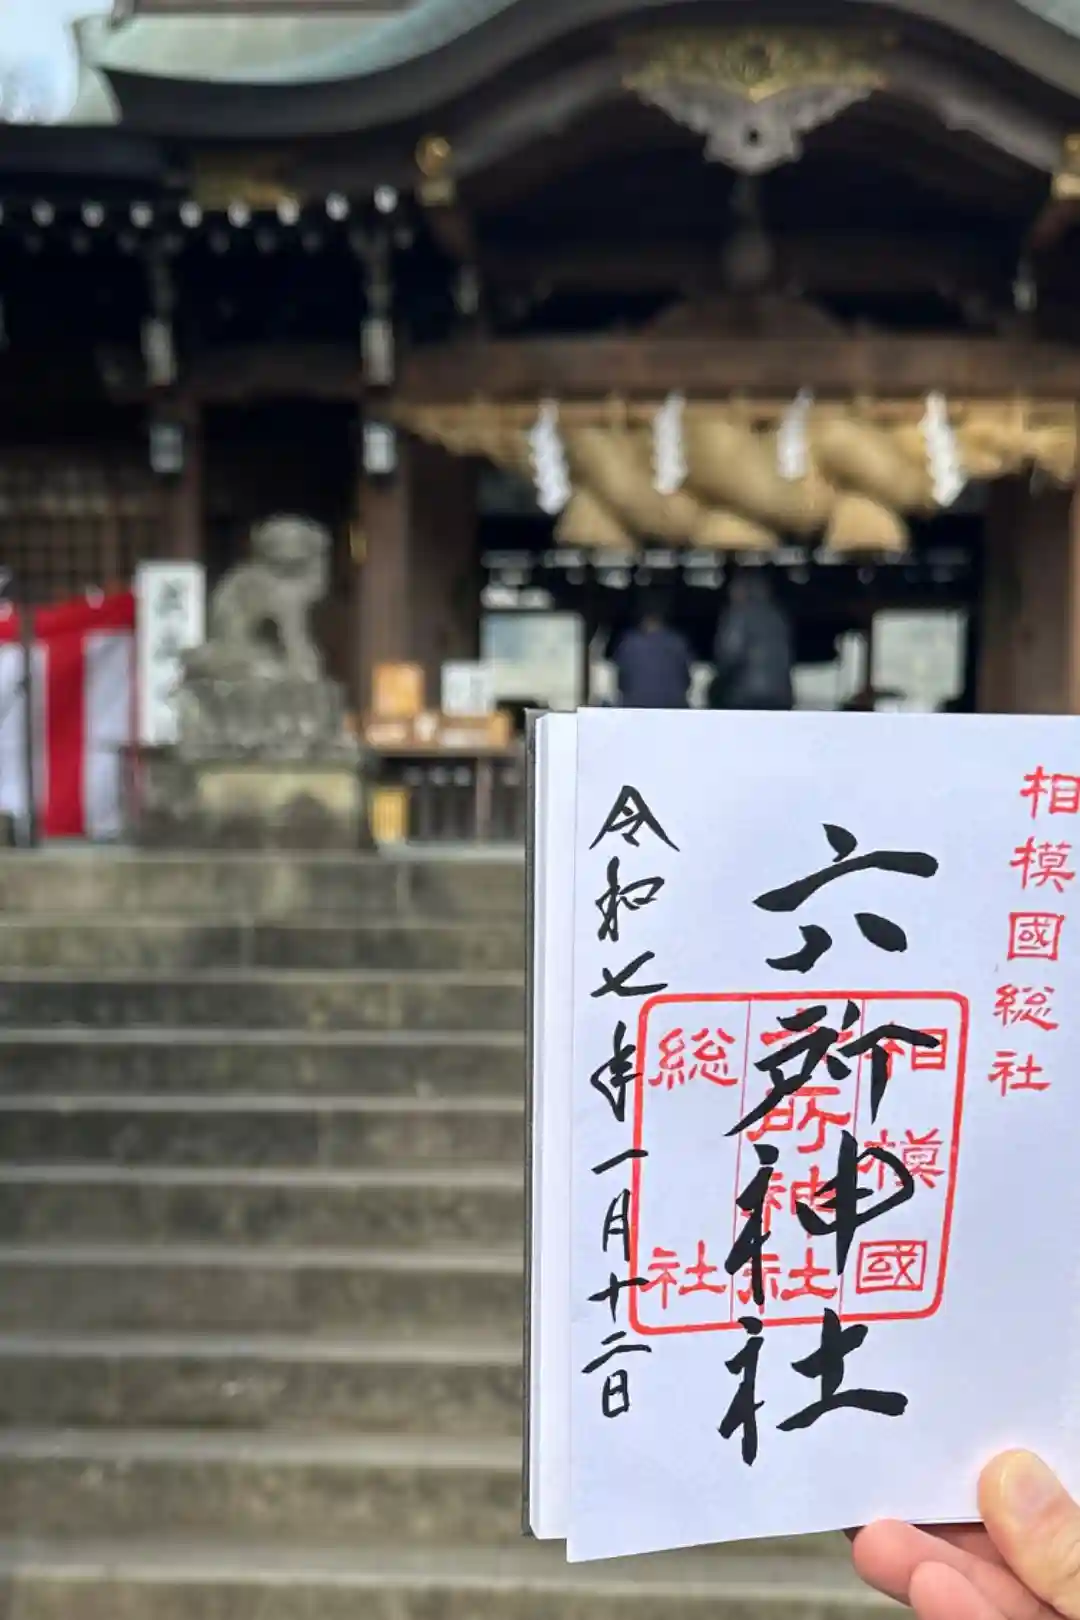 相模國総社
六所神社
相模國
六所神社
総社
令和七年一月十二日